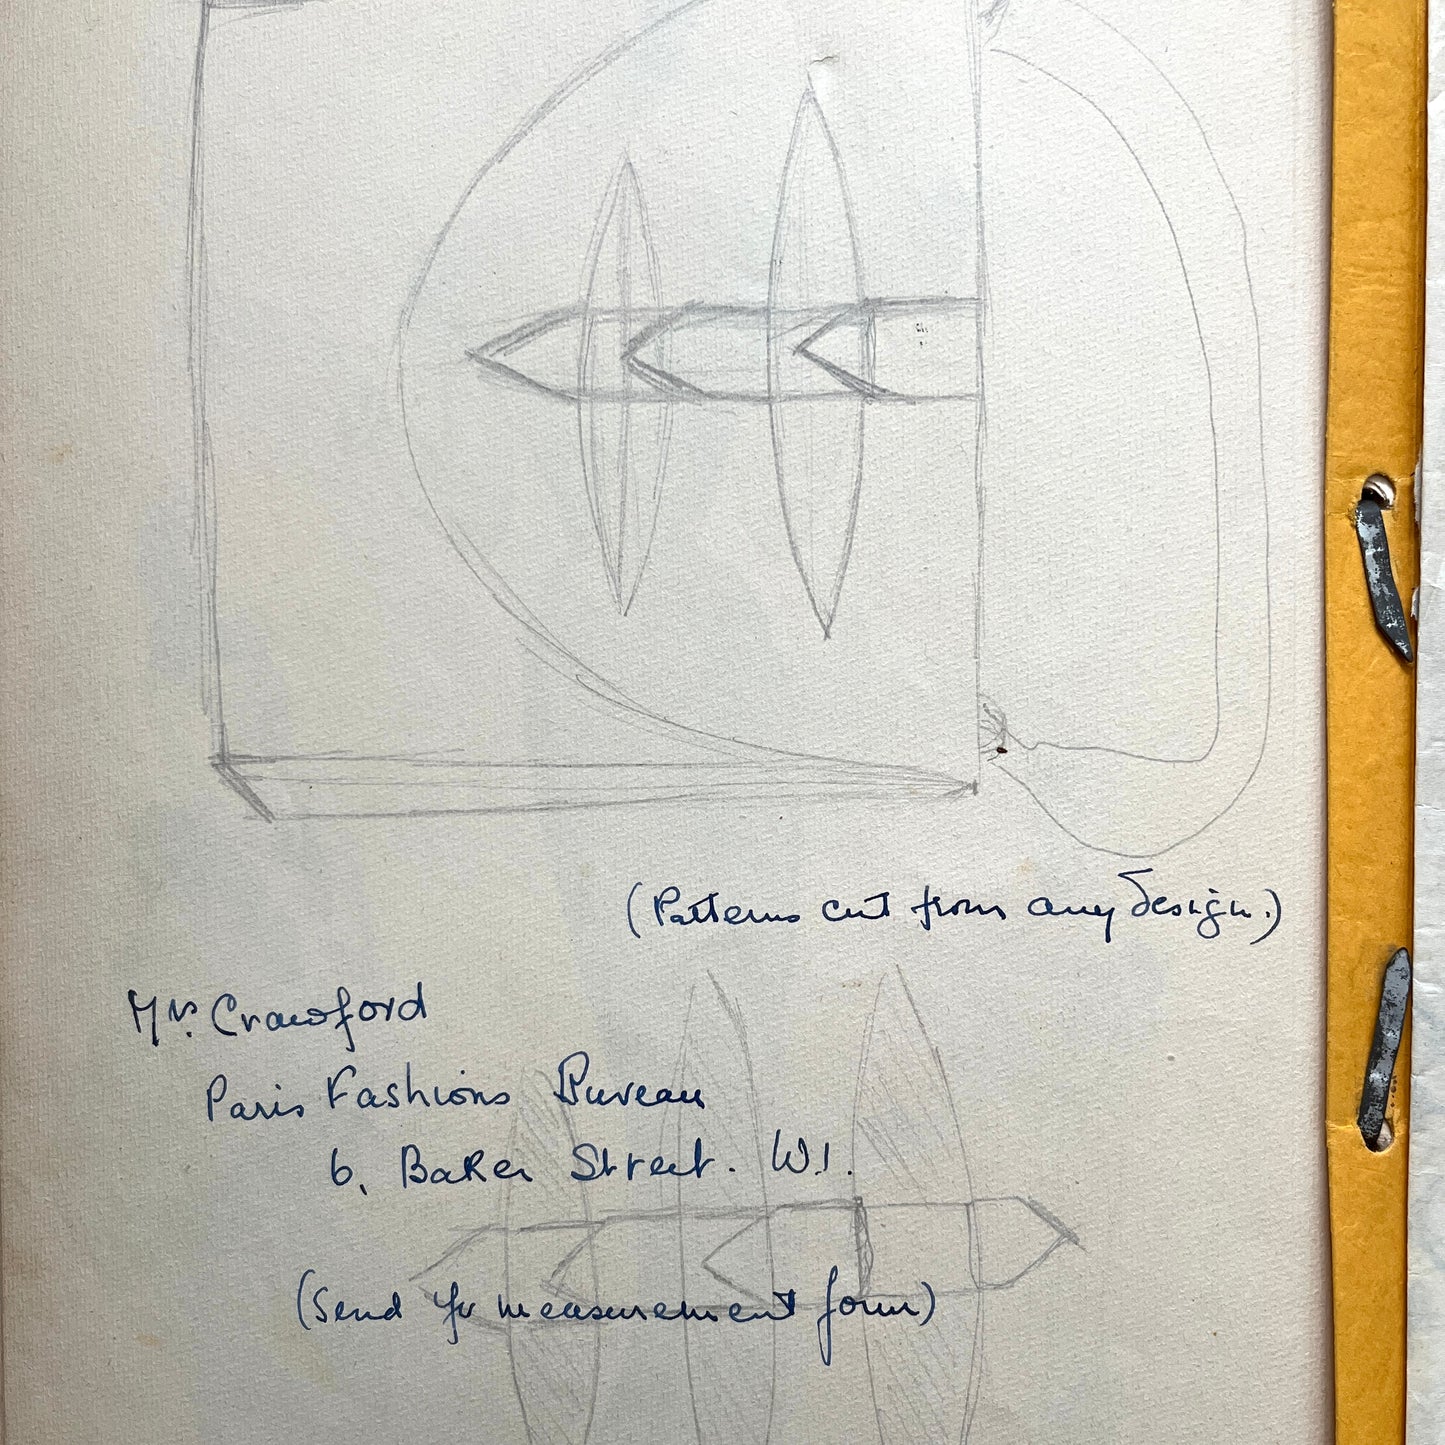 (Patterns cut from any Design.)
Mrs. Crawford
Paris Fashions Bureau
6, Baker Street. W.1.
(Send for measurement form)